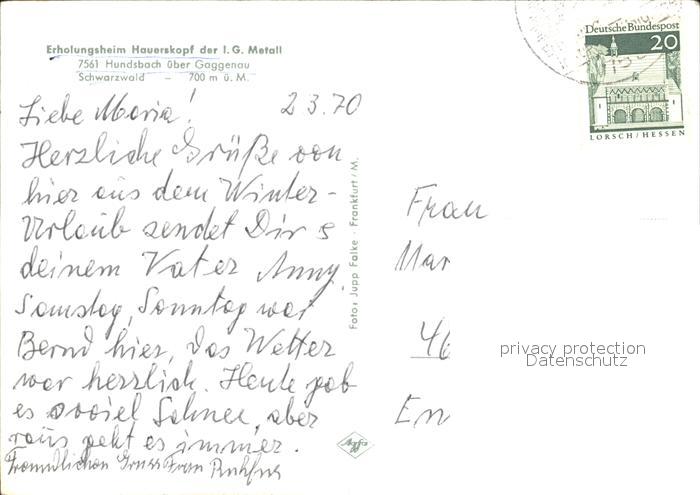 Erholungsheim Hauerskopf der I. G. Metall
7561 Hundsbach über Gaggenau
Schwarzwald – 700 m ü. M.
Deutsche Bundespost
20
LORSCH/HESSEN
Liebe Maria! 2 3. 70
Herzliche Grüße von
hier aus dem Winter-
Urlaub sendet Dir
deinem Vater Anny.
Samstag, Sonntag war
Bernd hier, das Wetter
war herzlich. Heute gab
es soviel Schnee, aber
raus geht es immer.
Freundlichen Gruss Frau
Foto: Jupp Falke · Frankfurt/M.
Agfa
Frau
Mar
46
En
privacy protection
Datenschutz